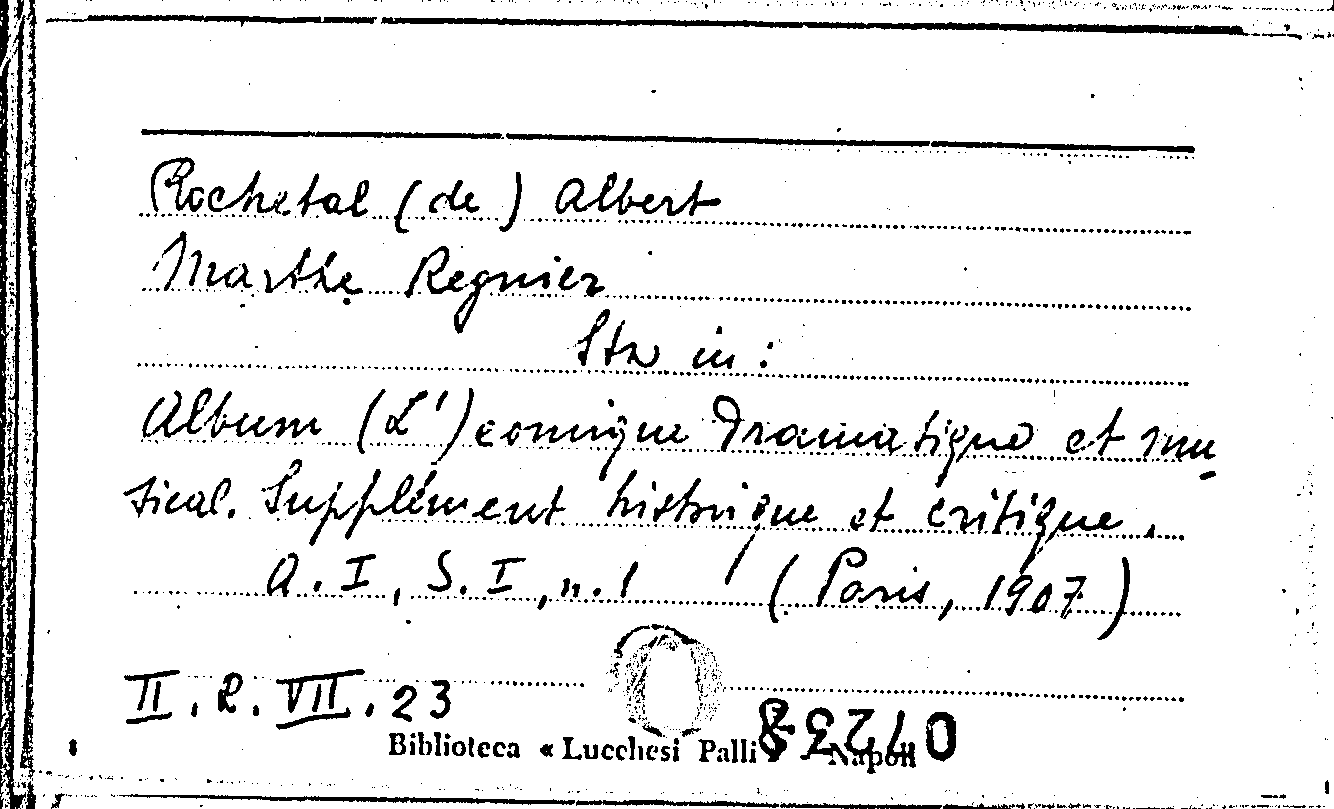 Rochetal (de) Albert
Marthe Regnier
Sta in:
Album (L') comique dramatique et mu-
sical. Supplément historique et critique.
A. I, S. I, n. 1 (Paris, 1907)
II. R. VII. 23
Biblioteca « Lucchesi Palli » - Napoli